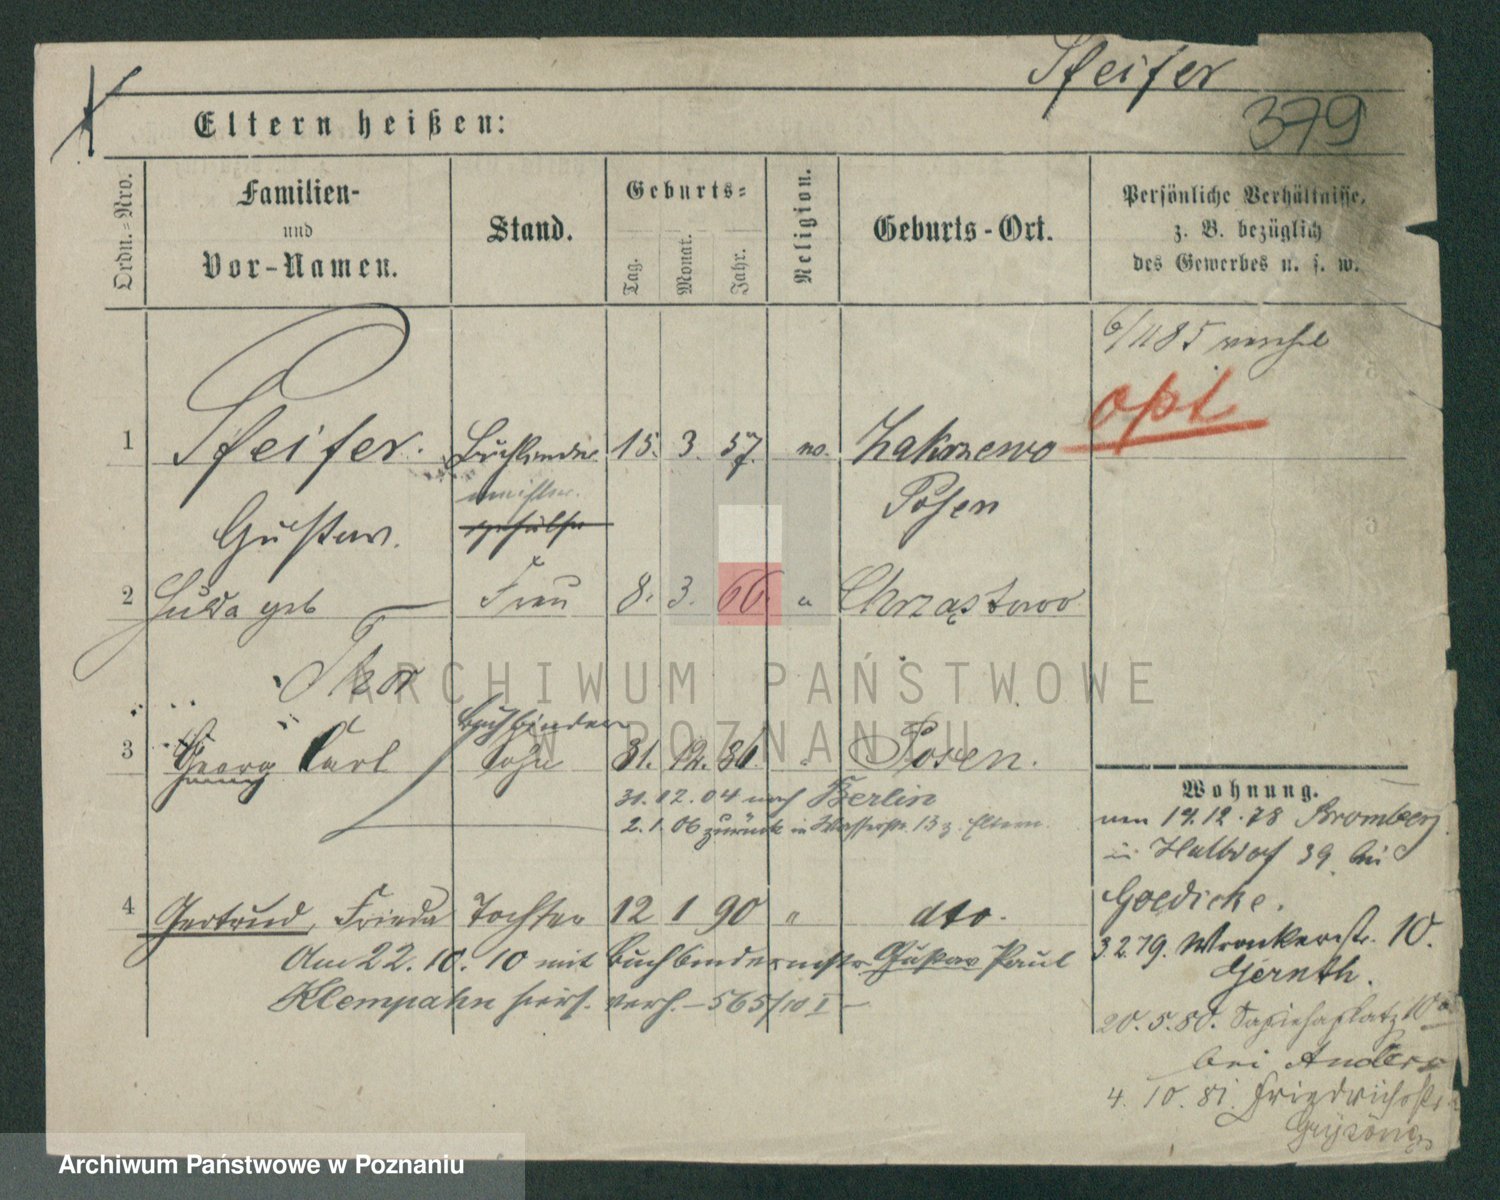 Pfeifer
379
Eltern heißen:
Ordn.-Nro.
Familien-
und
Vor-Namen.
Stand.
Geburts-
Tag.
Monat.
Jahr.
Religion.
Geburts-Ort.
Persönliche Verhältnisse,
z. B. bezüglich
des Gewerbes u. s. w.
opt
1 Pfeifer. Buchbinder 15. 3. 57. Zakrzewo
meister.
Posen
Gustav.
2 Hulda geb Frau 8. 3. 66. " Chrząstowo
Buchbinder
3 Georg Carl Sohn 31. 12. 86 " Posen.
31. 12. 04 nach Berlin
2. 1. 06 zurück in Wasserstr. 13 z. Eltern.
4 Gertrud, Frieda Tochter 12 1 90 " dto.
Am 22. 10. 10 mit Buchbindermstr Gustav Paul
Klempahn hier. verh. – 565/10 I –
Wohnung.
von 14. 12. 78 Bromberg
in Halbdorf 39 bei
Goedicke.
3.2.79. Wronkerstr. 10.
Gernth.
20. 5. 80. Sapiehaplatz 10
bei Anders
4. 10. 81. Friedrichstr.
ARCHIWUM PAŃSTWOWE
W POZNANIU
Archiwum Państwowe w Poznaniu